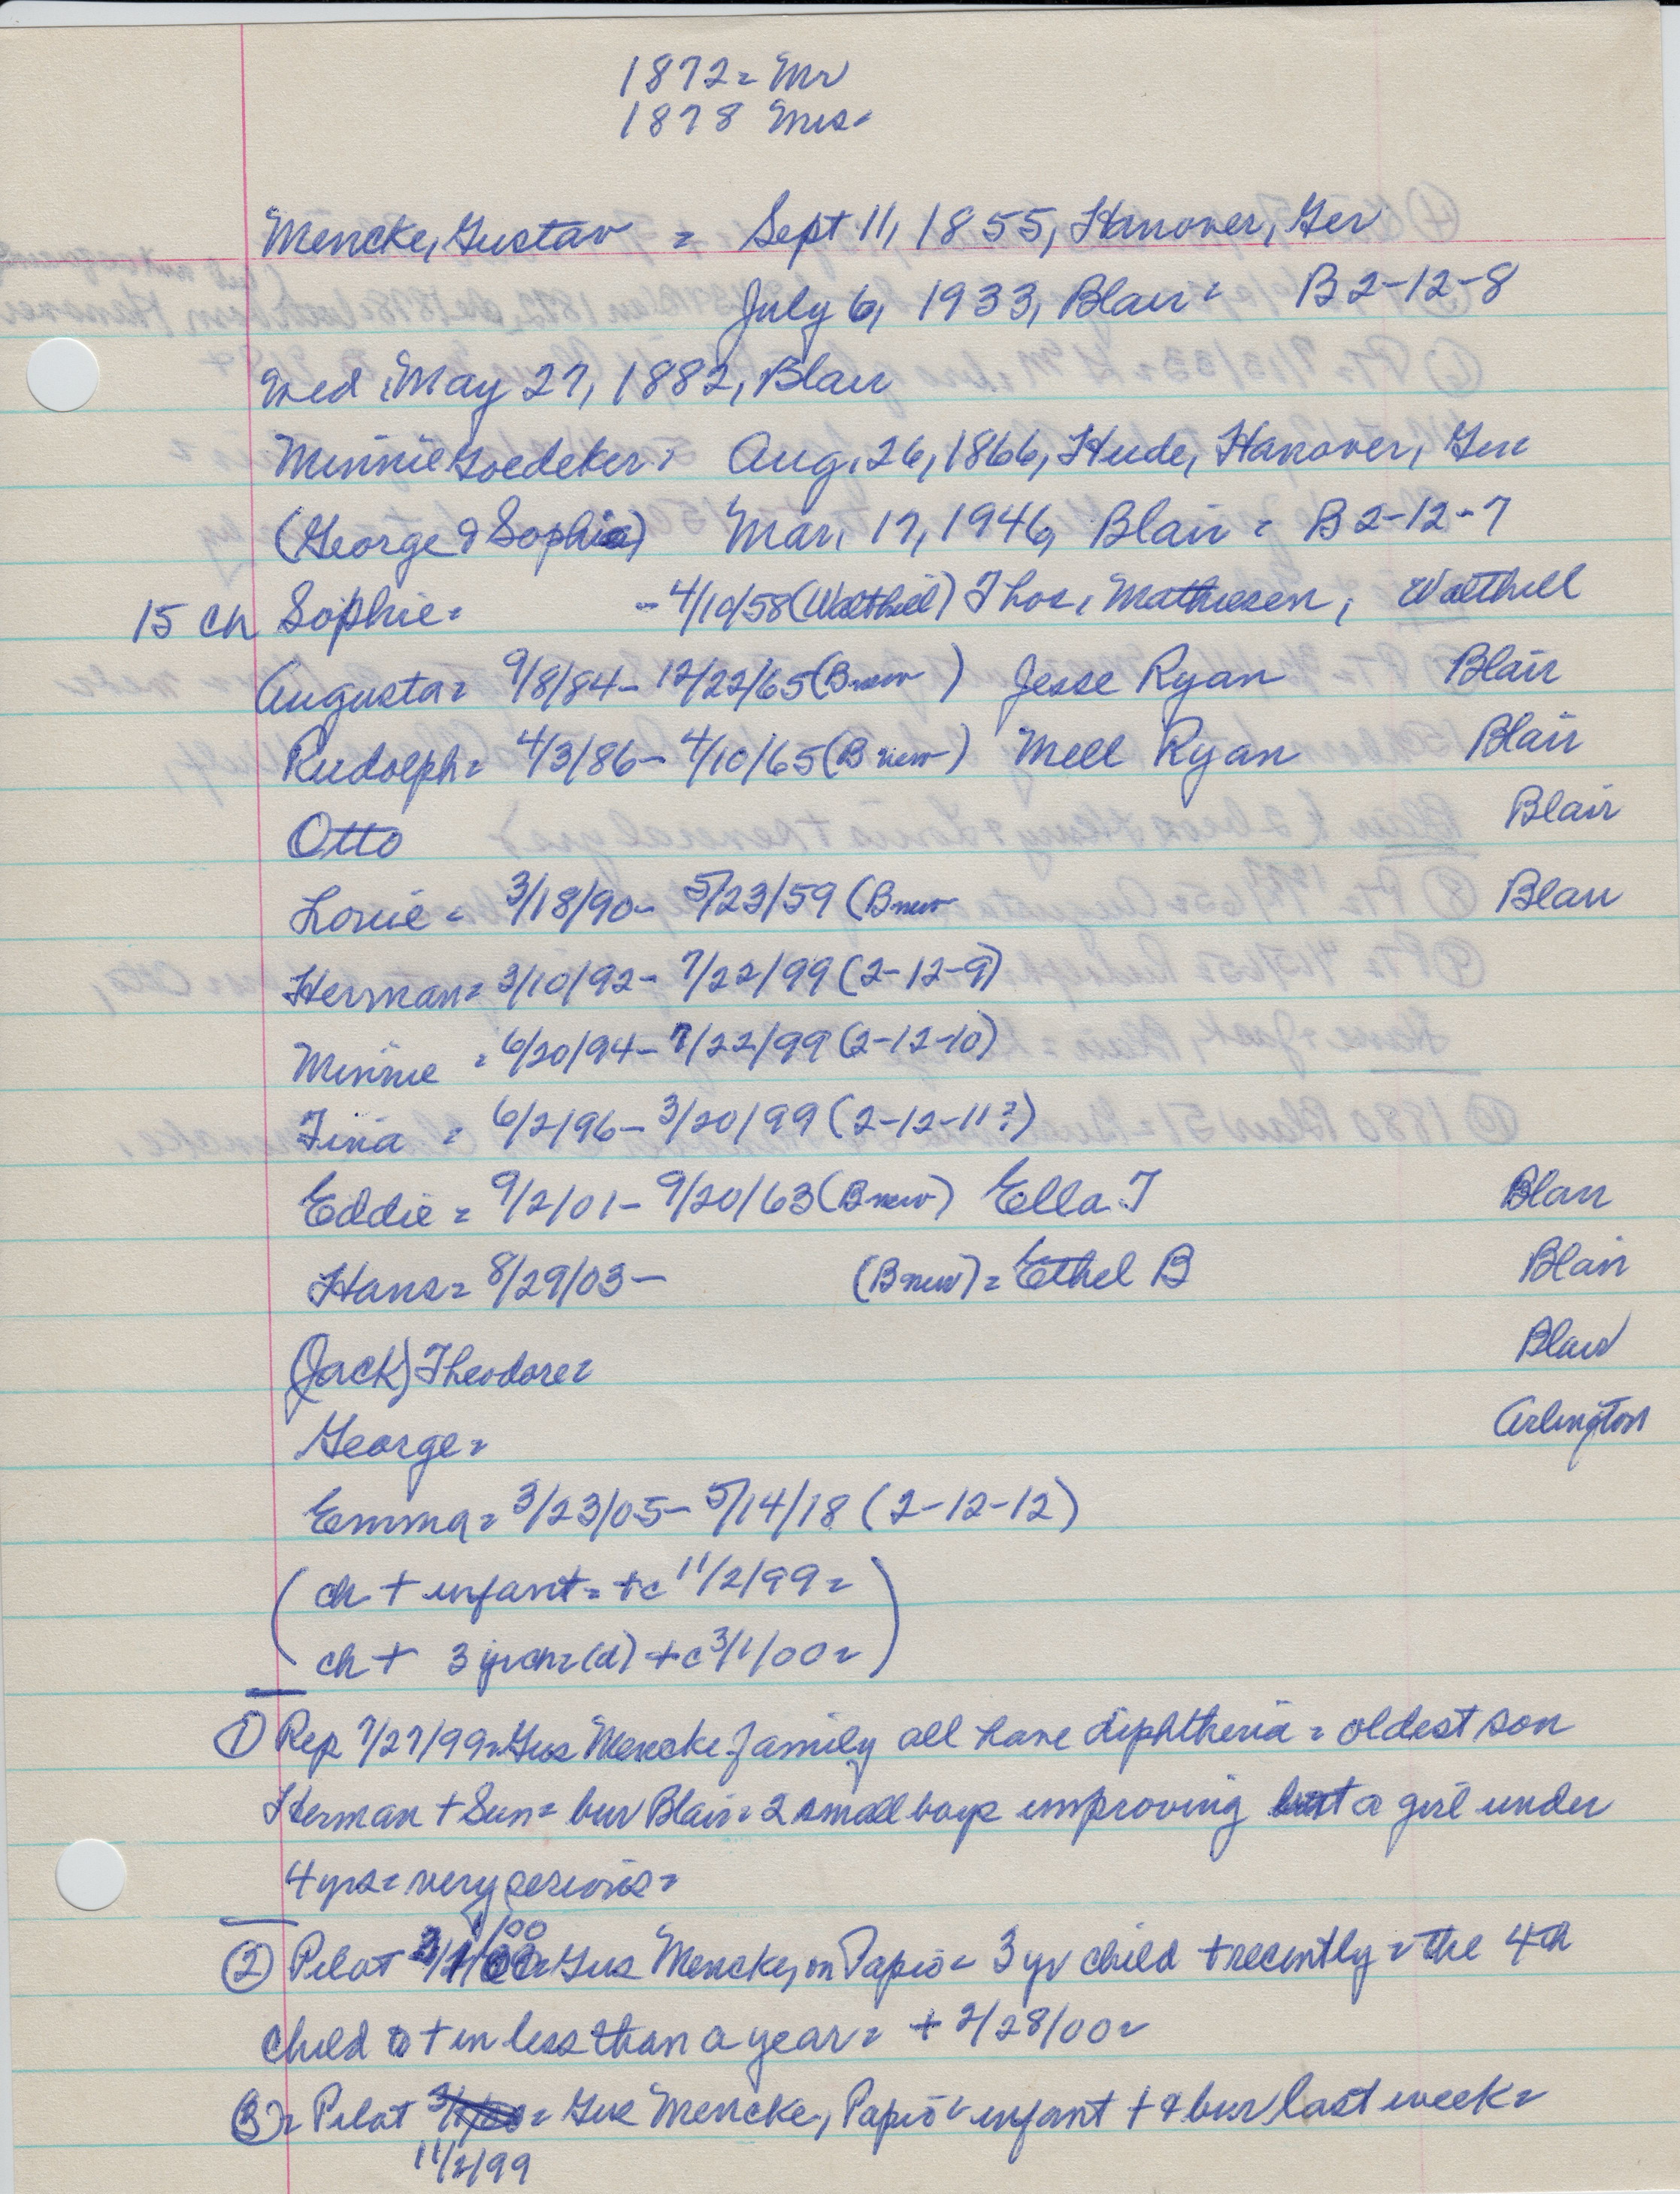 1872 = Mr
1878 Mrs.
Mencke, Gustav = Sept 11, 1855, Hanover, Ger
July 6, 1933, Blair = B 2-12-8
med May 27, 1882, Blair
Minnie Goedeker = Aug. 26, 1866, Hude, Hanover, Ger
(George & Sophia) Mar. 17, 1946, Blair = B 2-12-7
15 ch Sophie = - 4/10/58 (Walthill) Thos. Mathiesen, Walthill
Augusta = 9/8/84 - 12/22/65 (B new ) Jesse Ryan Blair
Rudolph = 4/3/86 - 4/10/65 (B new ) Mell Ryan Blair
Otto Blair
Louie = 3/18/90 - 5/23/59 (B new Blair
Herman = 3/10/92 - 7/22/99 (2-12-9)
Minnie = 6/20/94 - 7/22/99 (2-12-10)
Tina = 6/2/96 - 3/20/99 (2-12-11?)
Eddie = 9/2/01 - 9/20/63 (B new) Ella T Blair
Hans = 8/29/03 - (B new) = Ethel B Blair
(Jack) Theodore = Blair
George = Arlington
Emma = 3/23/05 - 5/14/18 (2-12-12)
(ch + infant = +c 11/2/99 =
ch + 3 yr ch = (d) +c 3/1/00 = )
① Rep 7/27/99 = Gus Mencke family all have diphtheria = oldest son
Herman + Sun = bur Blair = 2 small boys improving but a girl under
4 yrs = very serious =
② Pilot 3/1/00 = Gus Mencke, on Papio = 3 yr child + recently = the 4th
child to + in less than a year = + 2/28/00 =
③ = Pilot = Gus Mencke, Papio = infant + & bur last week =
11/2/99